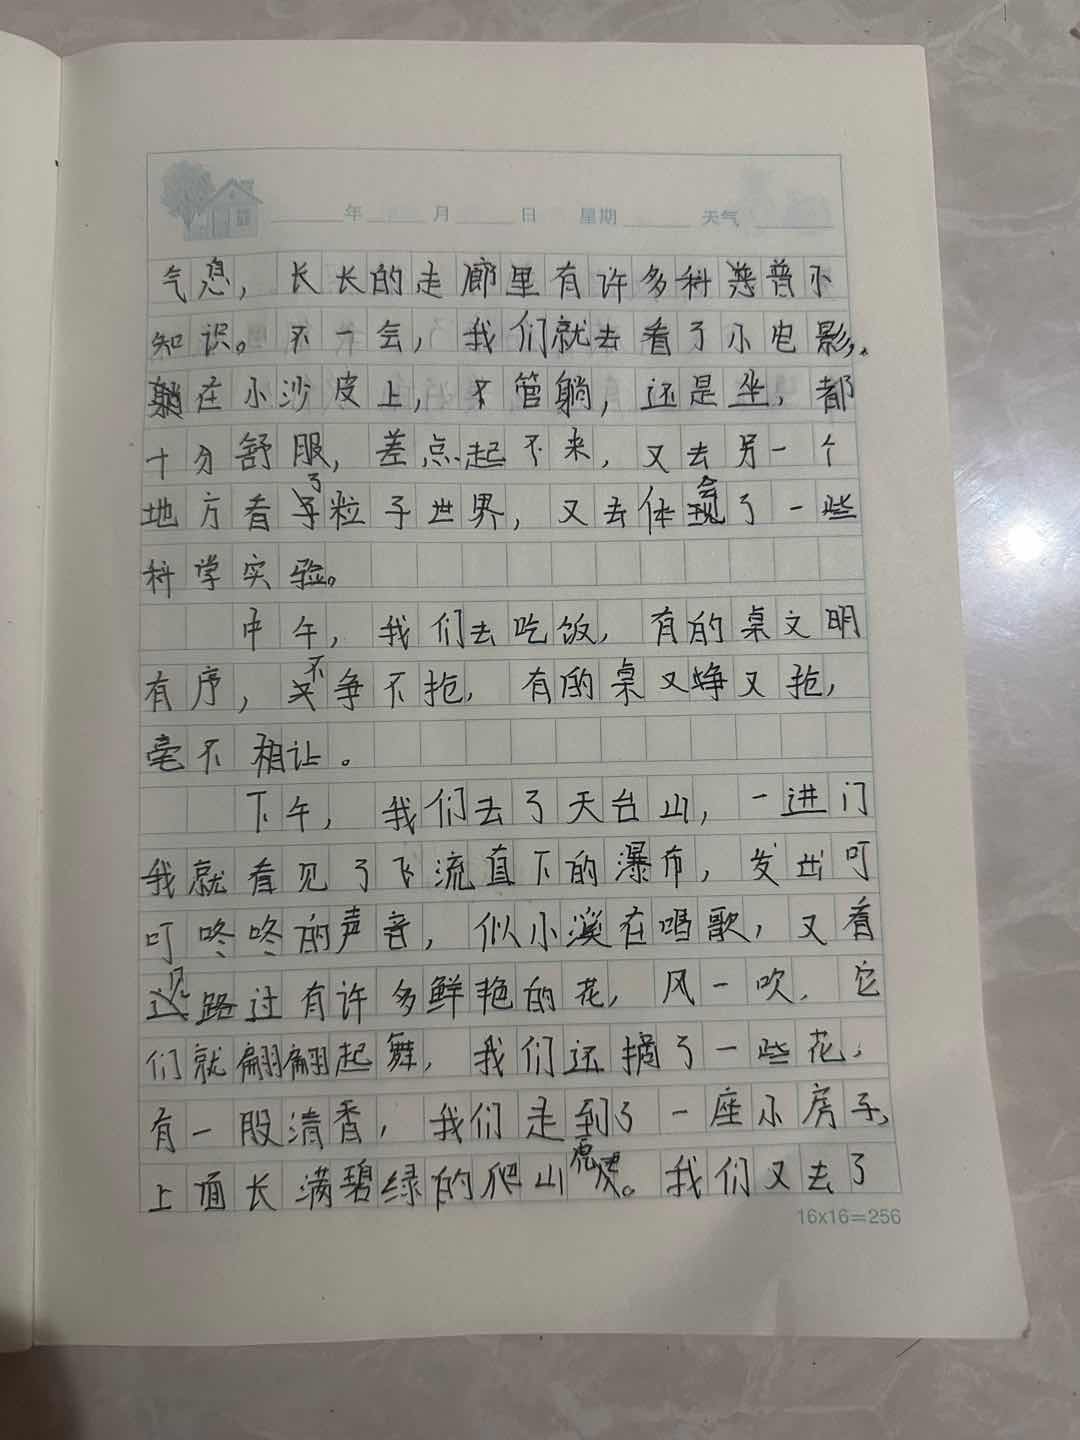 年 月 日 星期 天气
气息，长长的走廊里有许多科普小
知识。不一会，我们就去看了小电影，
躺在小沙皮上，不管躺，还是坐，都
十分舒服，差点起不来，又去另一个
地方看了粒子世界，又去体会了一些
科学实验。
中午，我们去吃饭，有的桌文明
有序，不争不抢，有的桌又挣又抢，
毫不相让。
下午，我们去了天台山，一进门
我就看见了飞流直下的瀑布，发出叮
叮咚咚的声音，似小溪在唱歌，又看
见路过有许多鲜艳的花，风一吹，它
们就翩翩起舞，我们还摘了一些花，
有一股清香，我们走到了一座小房子，
上面长满碧绿的爬山虎。我们又去了
16x16=256